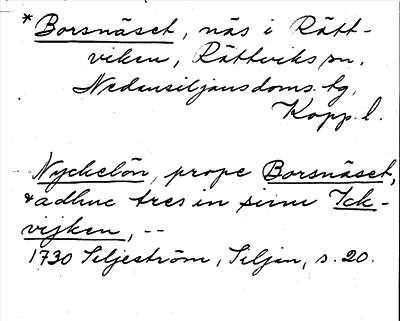 *Borsnäset, näs i Rätt-
viken, Rättviks sn,
Nedansiljans doms. tg,
Kopp. l.
Nyckelön, prope Borsnäset,
& adhuc tres in sinu Ick-
vijken, --
1730 Siljeström, Siljan, s. 20.